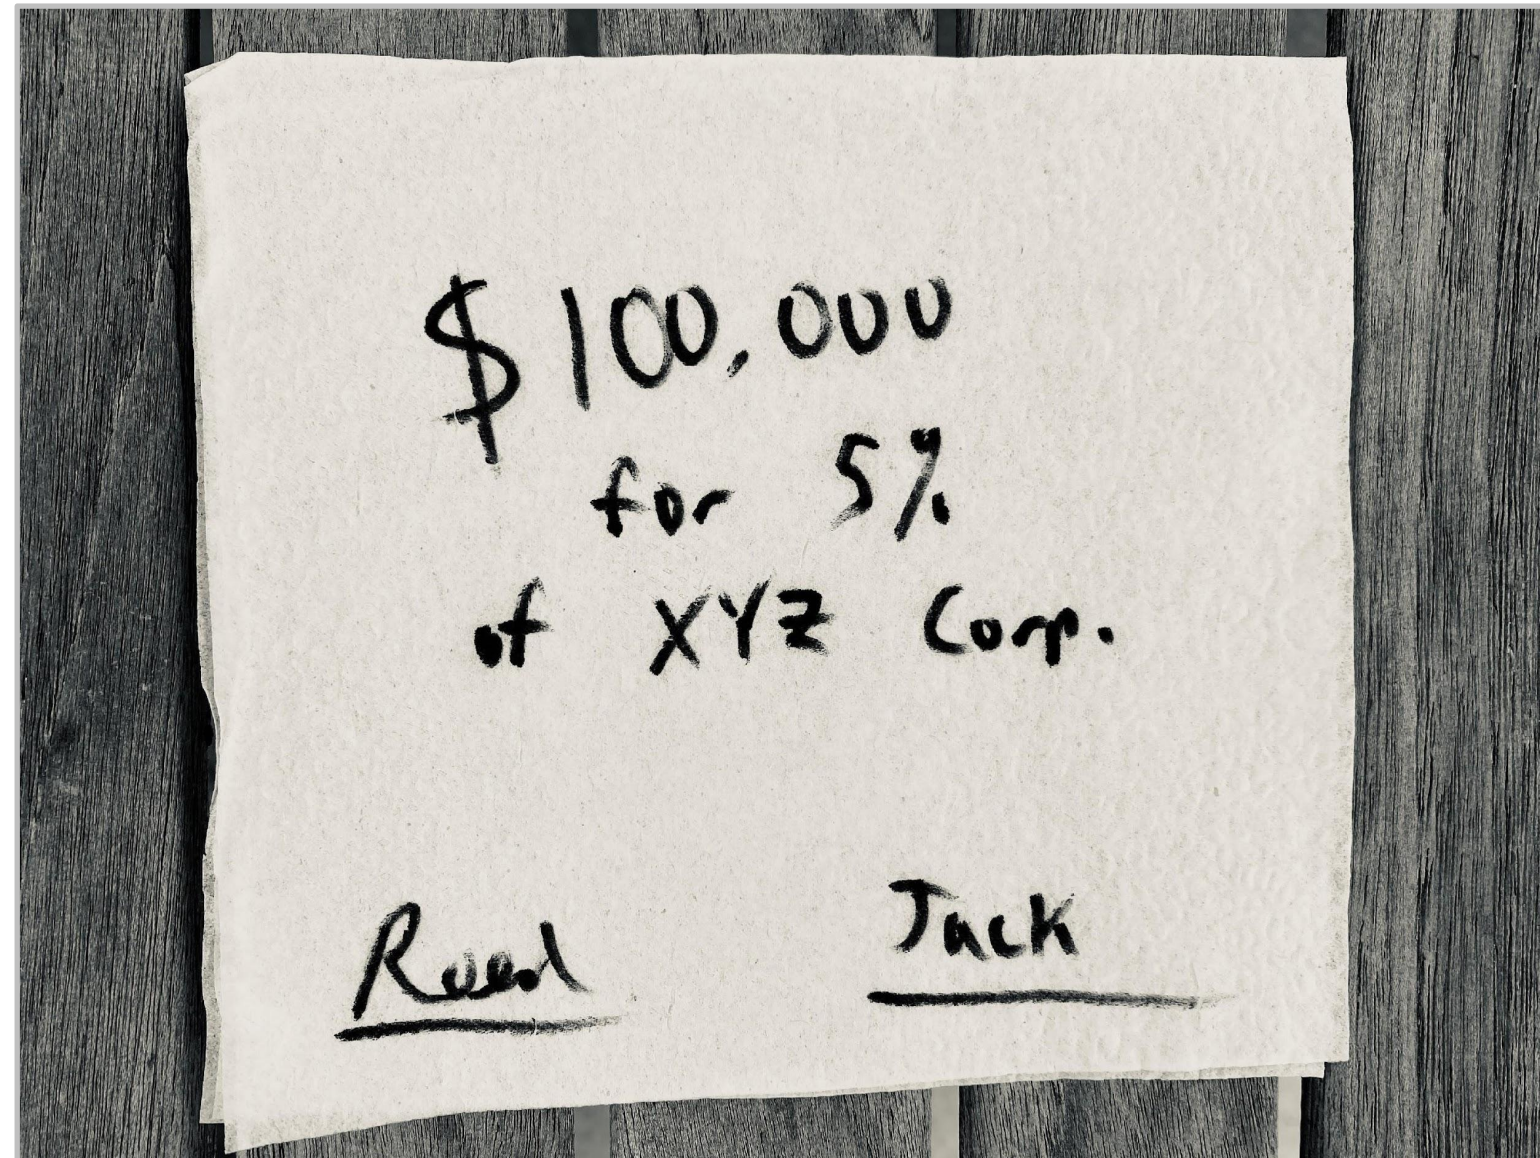 $100,000
for 5%
of XYZ Corp.
Reed Jack